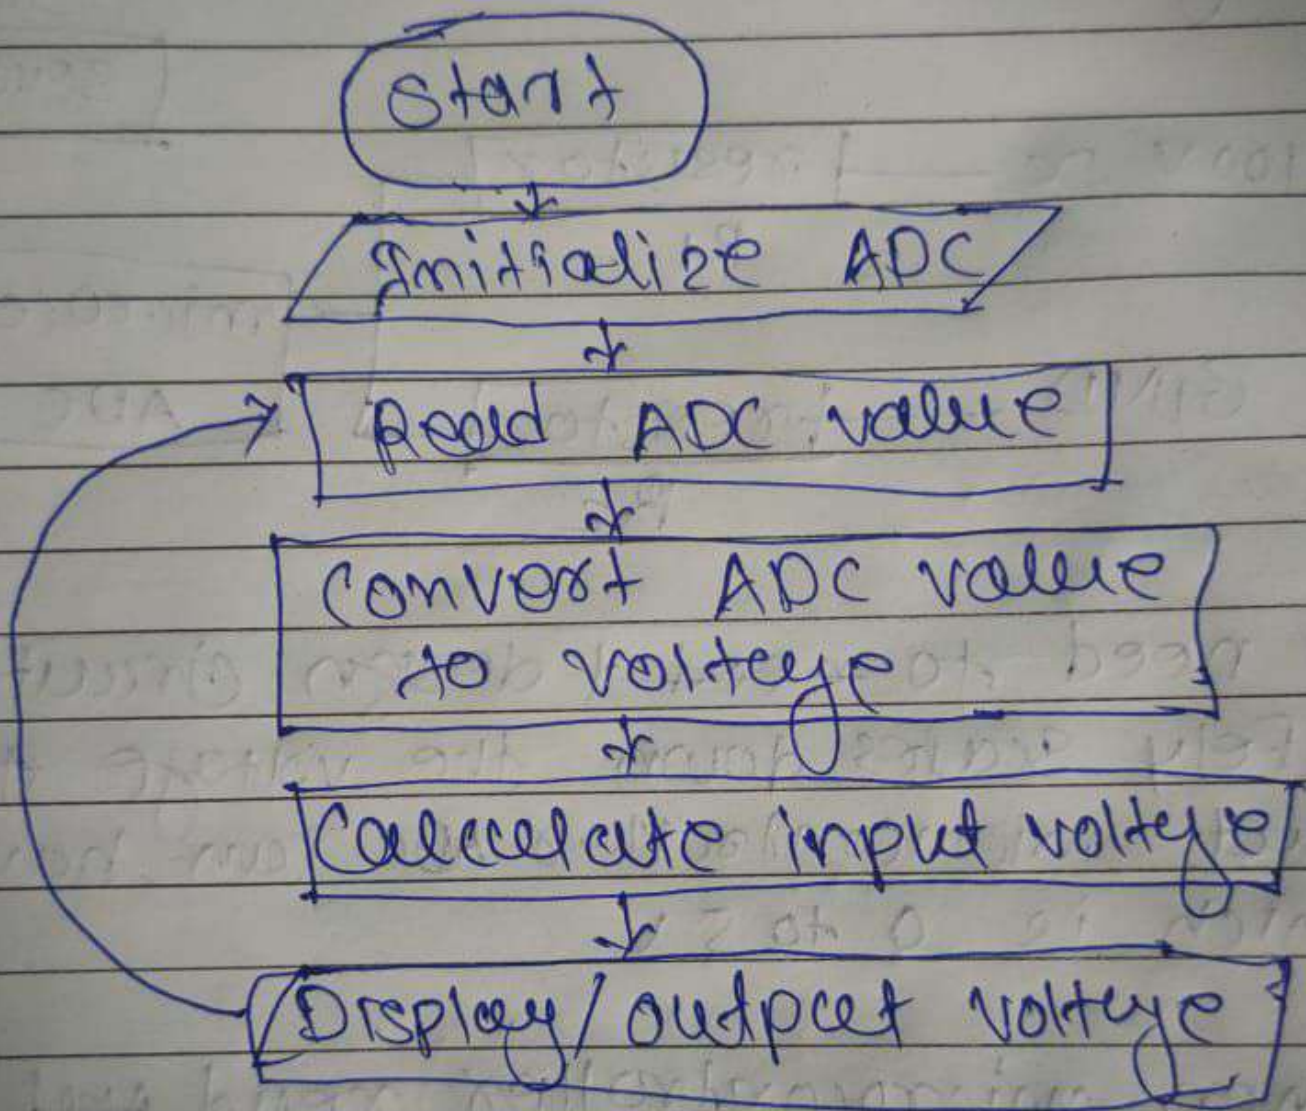 Start
Initialize ADC
Read ADC value
Convert ADC value
to voltage
Calculate input voltage
Display/output voltage